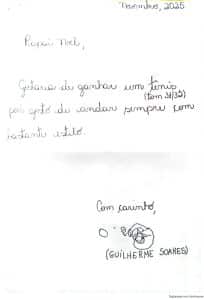 Novembro, 2025
Papai Noel,
Gostaria de ganhar um tênis
(tam 31/32)
pois gosto de andar sempre com
bastante estilo.
Com carinho,
(GUILHERME SOARES)